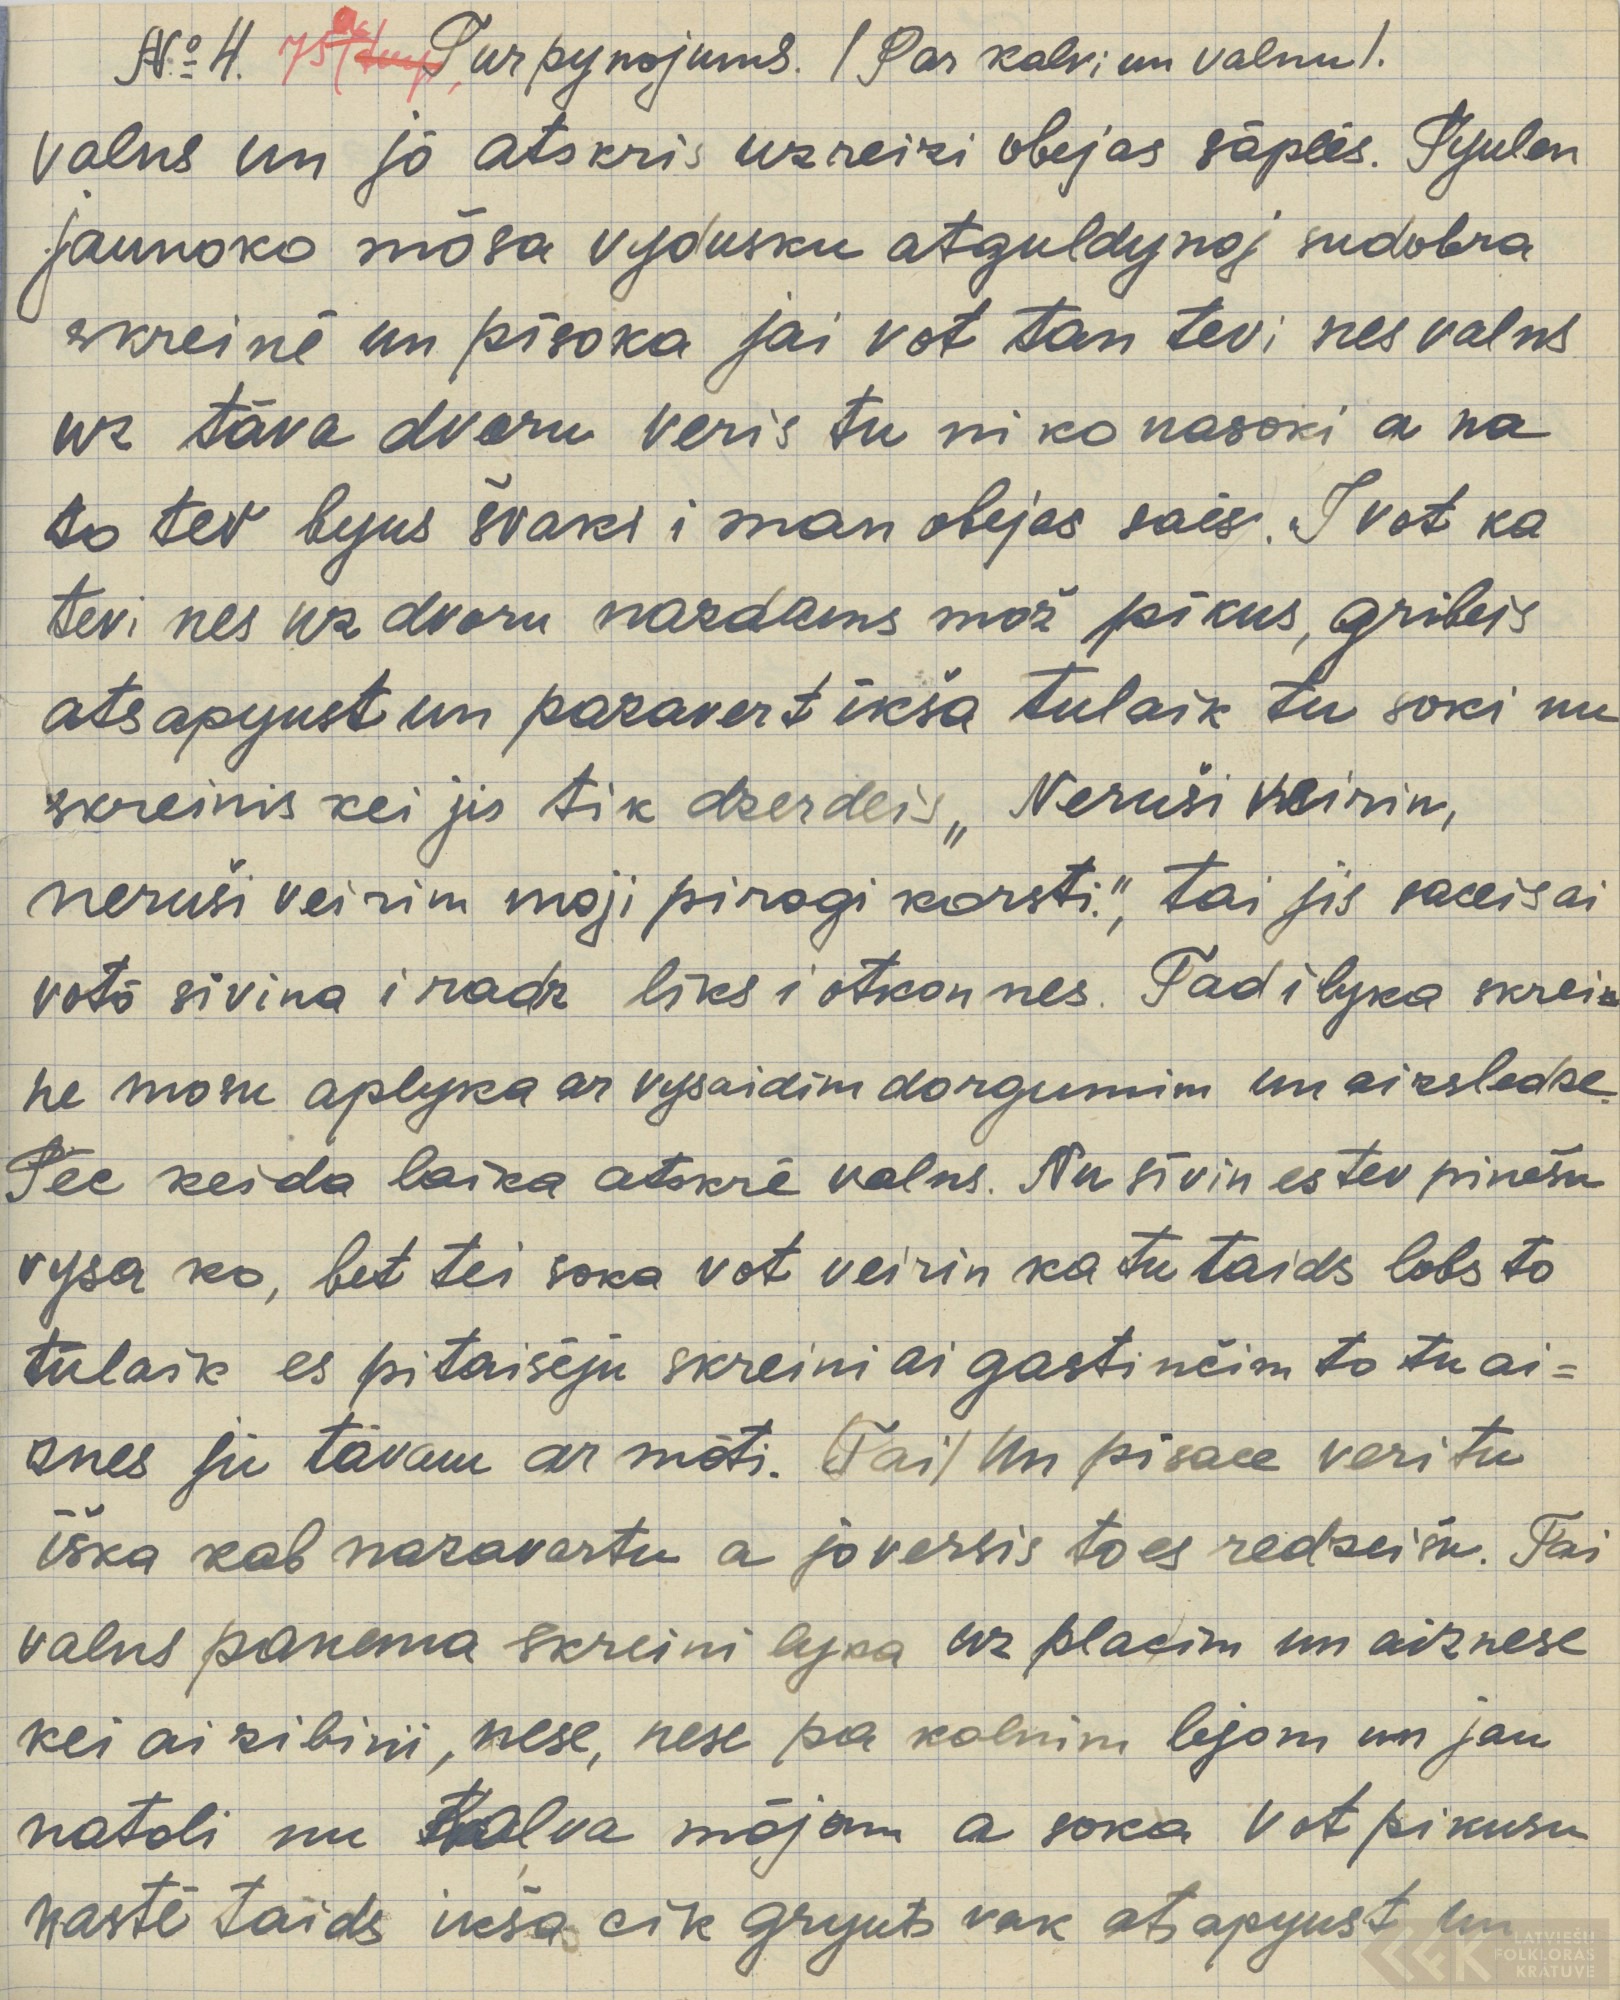 № 4. Turpynojums. /Par kalvi un valnu/.
valns un jō atskris uzreizi obejas sāpēs. Tyulen
jaunoko mōsa vydusku atguldynoj sudobra
skreinē un pīsoka jai vot tan tevi nes valns
uz tāva dvoru veris tu ni ko nasoki a na
to tev byus švaki i man obejas saēs. I vot ka
tevi nes uz dvoru nazdams mož pīkus, gribeis
atsapyust un pazavert īkša tulaik tu soki nu
skreinis kei jis tik dzerdeis „Neruši veirin,
neruši veirim moji pirogi korsti.", tai jis saceis ai
votō sīvina i radz līks i otkon nes. Tad i lyka skrei
ne mosu aplyka ar vysaidim dorgumim un aizsledze.
Pēc keida laika atskrē valns. Nu sīvin es tev pinešu
vysa ko, bet tei soka vot veirin ka tu taids lobs to
tūlaik es pitaisēju skreini ai gastinčim to tu ai=
znes jū tāvam ar mōti. (Tai) Un pīsace veri tu
īška kab nazavartu a jo versis to es redzeišu. Tai
valns panema skreini lyka uz placim un aiznese
kei ai zibini, nese, nese pa kolnim lejom un jau
natoli nu kalva mōjom a soka vot pikusu
nastē taids ikša cik gryuts vak atsapyust un
LATVIEŠU
FOLKLORAS
KRĀTUVE